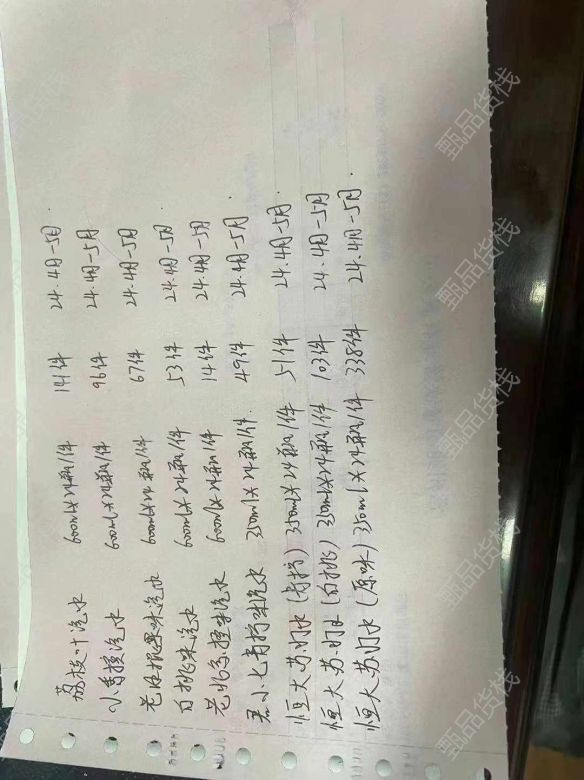 荔枝汁汽水 600ml×24瓶/件 141件 24.4月-5月.
小青提汽水 600ml×24瓶/件 96件 24.4月-5月
老汽水果味汽水 600ml×24瓶/件 67件 24.4月-5月
白桃味汽水 600ml×24瓶/件 53件 24.4月-5月
老北京橙味汽水 600ml×24瓶/件 14件 24.4月-5月
小七青柠味汽水 350ml×24瓶/件. 49件 24.4月-5月.
恒大苏打水(青柠) 350ml×24瓶/件 51件 24.4月-5月.
恒大苏打水(白桃) 350ml×24瓶/件 103件 24.4月-5月
恒大苏打水(原味) 350ml×24瓶/件 338件 24.4月-5月.
甄品货栈
甄品货栈
甄品货栈
甄品货栈
甄品货栈
甄品货栈
甄品货栈
甄品货栈
甄品货栈